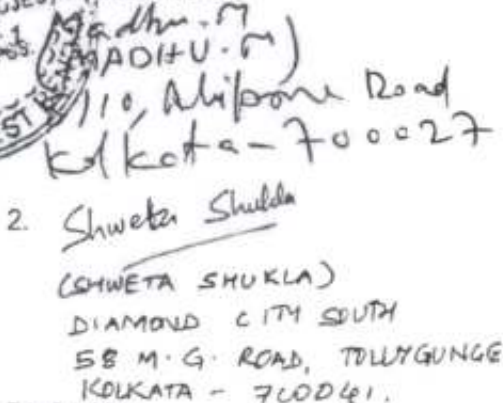 Madhu.M
(MADHU.M)
110, Alipore Road
Kolkata-700027
2. Shweta Shukla
(SHWETA SHUKLA)
DIAMOND CITY SOUTH
58 M.G. ROAD, TOLLYGUNGE
KOLKATA - 700041.